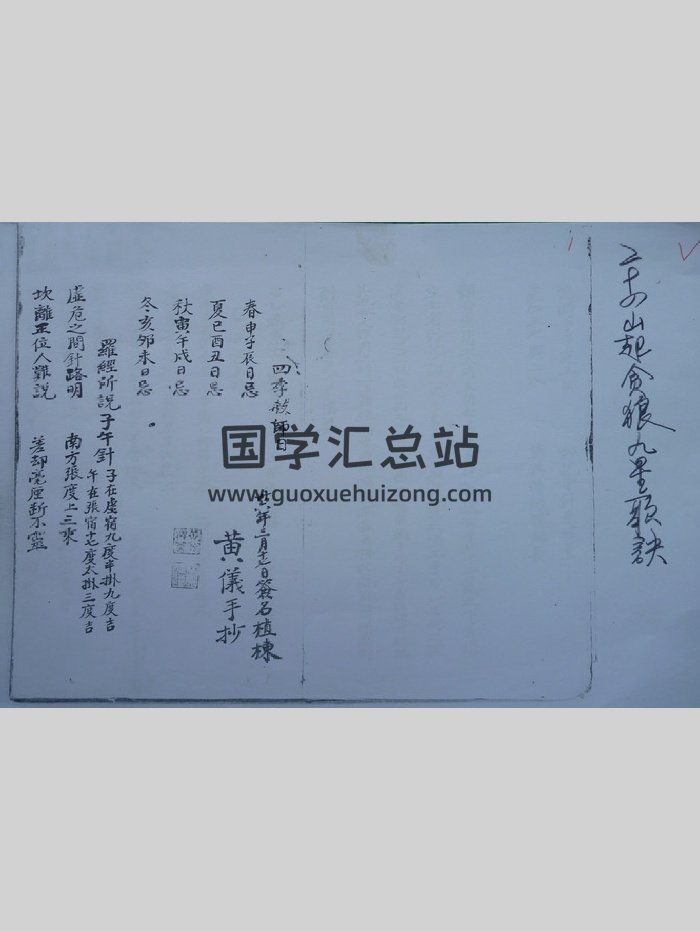 二十四山起贪狼九星歌訣
四季教師日
春申子辰日忌
夏巳酉丑日忌
秋寅午戌日忌
冬亥夘未日忌
年二月十七日簽名植棟
黄儀手抄
羅經所説子午針
子在虛宿九度半掛九度吉
午在張宿十七度太掛三度吉
虛危之間針路明
南方張度上三乘
坎離正位人難説
差却毫厘斷不靈
国学汇总站
www.guoxuehuizong.com